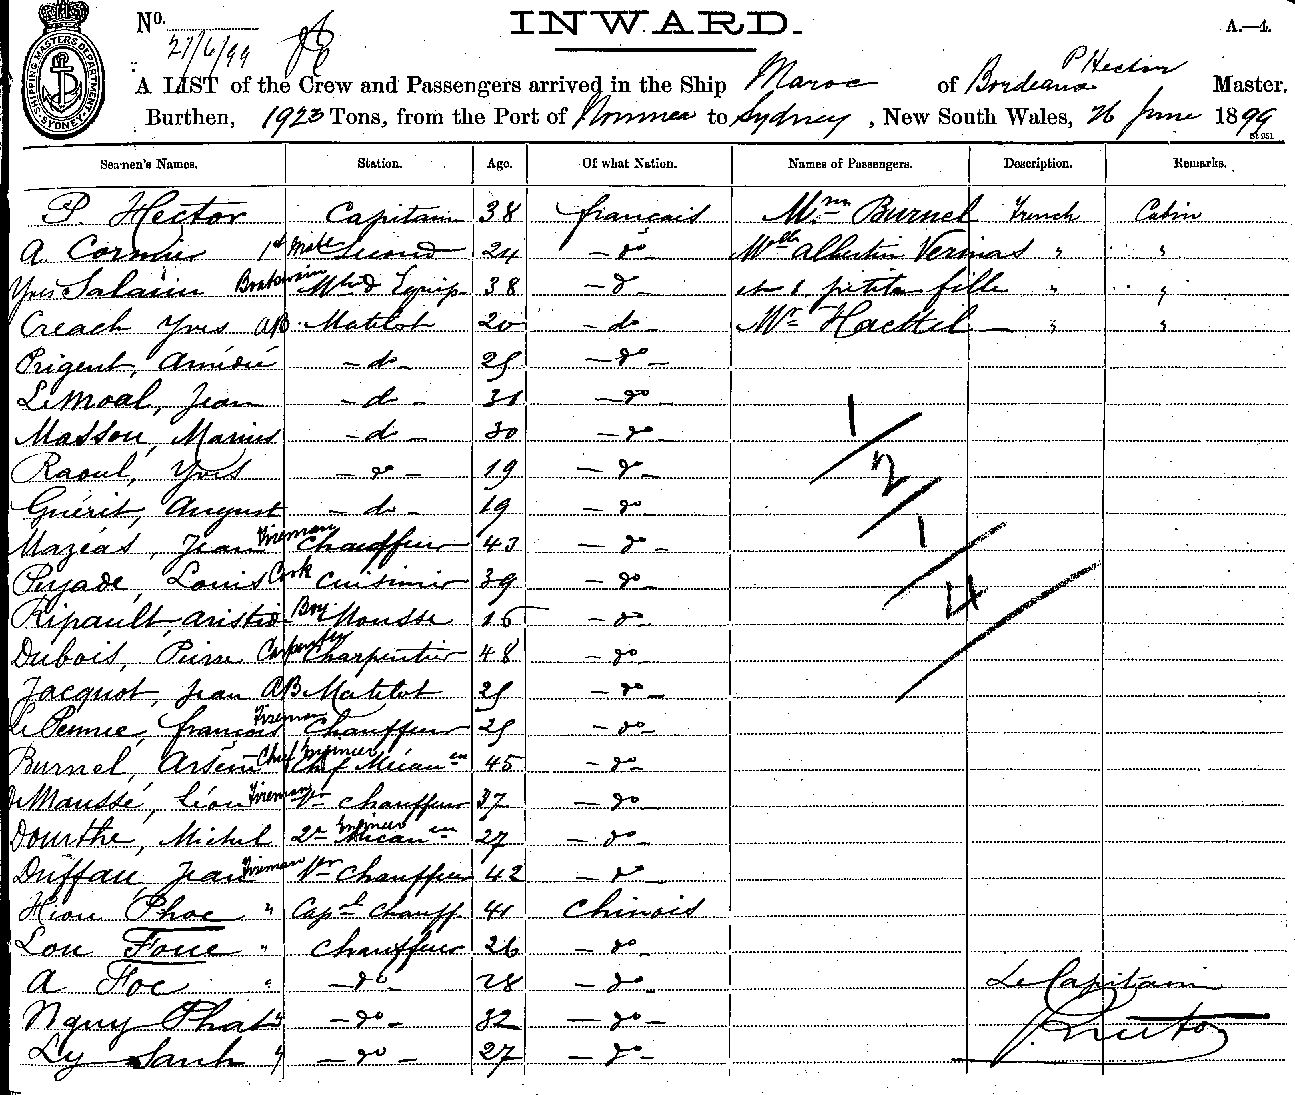 No. 27/6/99
INWARD.
A.—4.
SHIPPING MASTERS DEPARTMENT SYDNEY
A LIST of the Crew and Passengers arrived in the Ship Maroc of Bordeaux P Hector Master,
Burthen, 1923 Tons, from the Port of Noumea to Sydney, New South Wales, 26 June 1899
Seamen's Names. Station. Age. Of what Nation. Names of Passengers. Description. Remarks.
P Hector Capitain 38 français Mme Burnel French Cabin
A Cormier 1st Mate Second 24 — do — Mlle Albertin Vernas " "
Yves Salaün Boatswain Mtre d'Equip 38 — do — et 1 petite fille " "
Creach Yves AB Matelot 20 — do — Mr Hackel — " "
Prigent, Amédée — do — 25 — do —
Le Moal, Jean — do — 31 — do —
Masson, Marius — do — 30 — do —
Raoul, Yves — do — 19 — do —
Guérit, August — do — 19 — do —
Mazeas, Jean Fireman Chauffeur 43 — do —
Peyade, Louis Cook Cuisinier 39 — do —
Ripault, Aristid Boy Mousse 15 — do —
Dubois, Pierre Carpenter Charpentier 48 — do —
Jacquot, Jean AB Matelot 25 — do —
Le Pennec, François Fireman Chauffeur 25 — do —
Burnel, Arsène Chief Engineer Chef Mécanen 45 — do —
Maussé, Léon Fireman Chauffeur 37 — do —
Dourthe, Michel 2e Engineer Mécanen 27 — do —
Duffau, Jean Fireman Chauffeur 42 — do —
Hiou Phoc " Capal Chauff 41 Chinois
Lou Foue " Chauffeur 26 — do —
A Foc " — do — 28 — do — Le Capitain
Nguy Phat " — do — 32 — do —
Ly Sanh " — do — 27 — do —
1/
2/
1/
4/